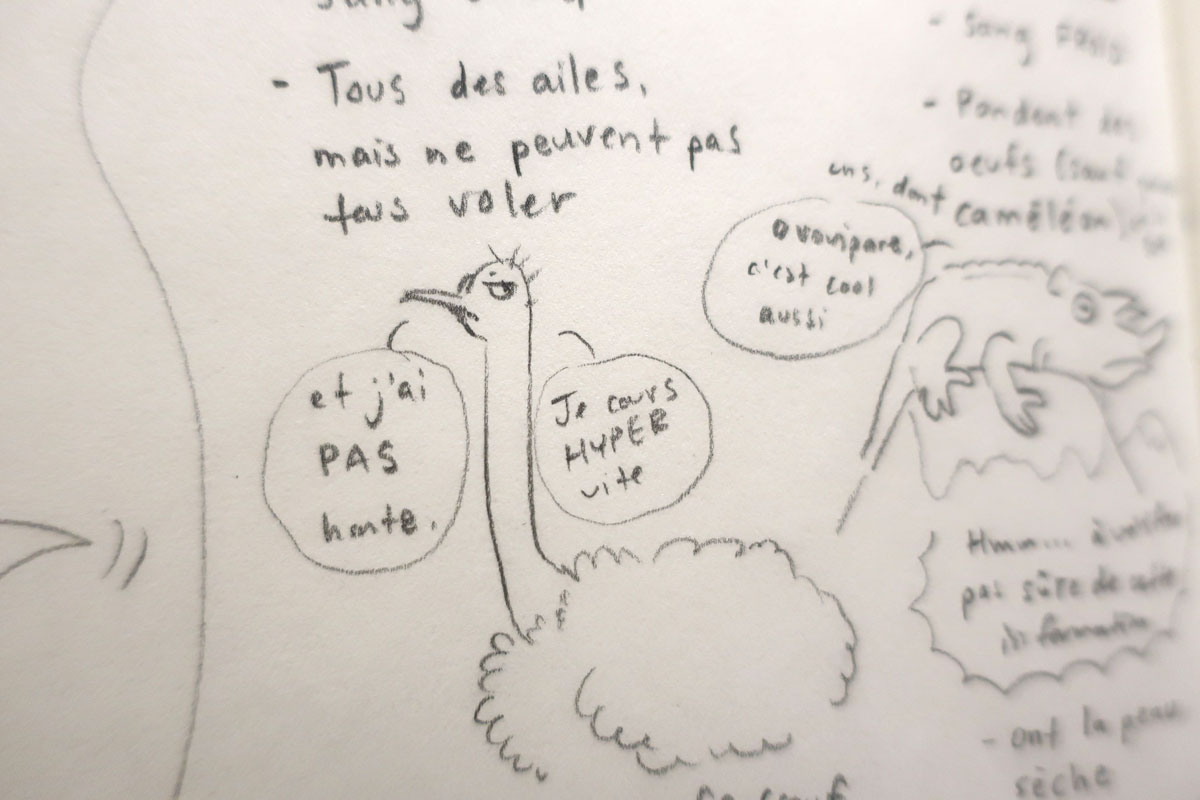 sang
- Tous des ailes,
mais ne peuvent pas
tous voler
et j'ai
PAS
honte.
Je cours
HYPER
vite
- Sang
- Pondent des
oeufs (sauf
uns, dont
caméléon)
Ovovipare,
c'est cool
aussi
Hmm... à vérifier
pas sûre de cette
information
- ont la peau
sèche